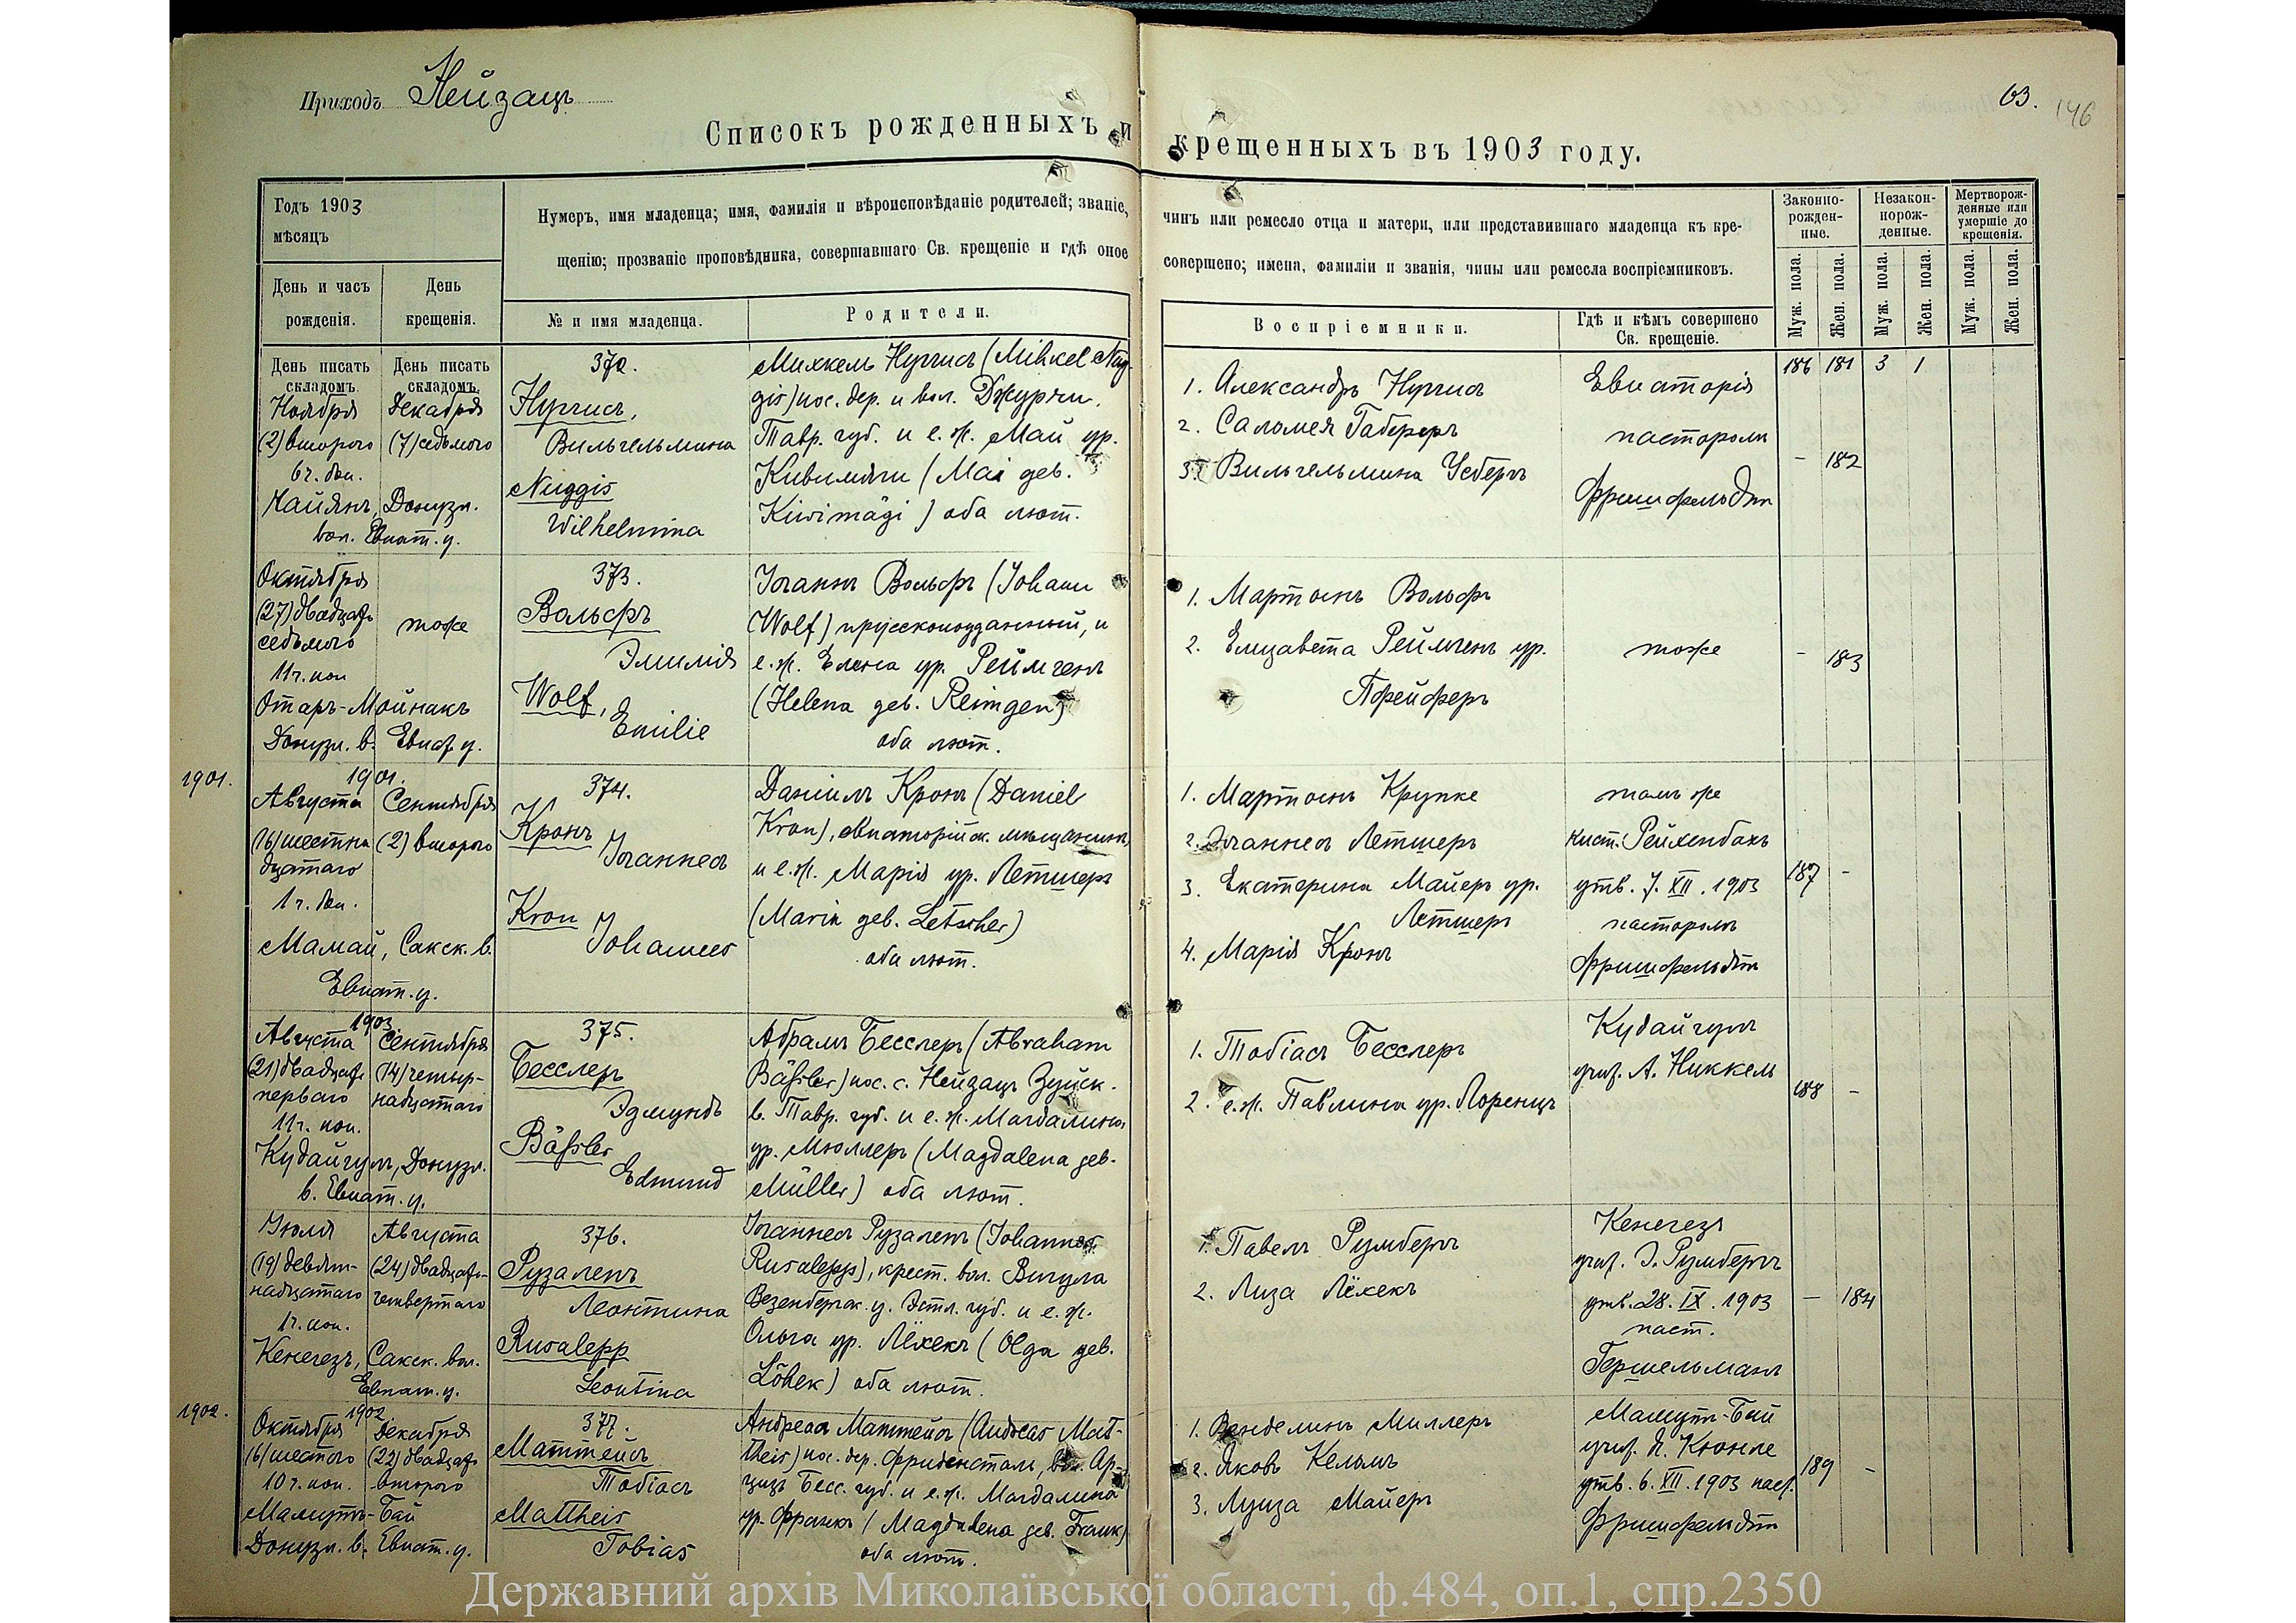 Приходъ Нейзацъ
63.
146
Списокъ рожденныхъ и крещенныхъ въ 1903 году.
Годъ 1903
мѣсяцъ
День и часъ
рожденія.
День
крещенія.
Нумеръ, имя младенца; имя, фамилія и вѣроисповѣданіе родителей; званіе, чинъ или ремесло отца и матери, или представившаго младенца къ кре-
щенію; прозваніе проповѣдника, совершавшаго Св. крещеніе и гдѣ оное совершено; имена, фамиліи и званія, чины или ремесла воспріемниковъ.
№ и имя младенца.
Родители.
Воспріемники.
Гдѣ и кѣмъ совершено
Св. крещеніе.
Законно-
рожден-
ные.
Незакон-
норож-
денные.
Мертворож-
денные или
умершіе до
крещенія.
Муж. пола.
Жен. пола.
Муж. пола.
Жен. пола.
Муж. пола.
Жен. пола.
День писать
складомъ.
Ноября
(2) второго
6 ч. дн.
День писать
складомъ.
Декабря
(7) седьмого
Кайянъ, Донузл.
вол. Евпат. у.
372.
Нуггисъ,
Вильгельмина
Nuggis
Wilhelmina
Михкель Нуггисъ (Mihkel Nug-
gis) пос. дер. и вол. Джурчи,
Тавр. губ. и е. ж. Май ур.
Кивимяги (Mai geb.
Kiwimägi) оба лют.
1. Александръ Нуггисъ
2. Саломея Габереръ
3. Вильгельмина Усбергъ
Евпаторія
пасторомъ
Фришфельдтъ
186 181 3 1
- 182
Октября
(27) двадцать
седьмого
11 ч. поп
тоже
Отаръ-Мойнакъ
Донузл. в. Евпат. у.
373.
Вольфъ
Эмилія
Wolf,
Emilie
Іоганнъ Вольфъ (Johann
Wolf) прусскоподданный, и
е. ж. Елена ур. Реймгенъ
(Helena geb. Reimgen)
оба лют.
1. Мартынъ Вольфъ
2. Елизавета Реймгенъ ур.
Пфейферъ
тоже
- 183
1901.
1901.
Августа
(16) шестна
дцатаго
1 ч. дн.
Сентября
(2) второго
Мамай, Сакск. в.
Евпат. у.
374.
Кронъ
Іоганнесъ
Kron
Johannes
Даніилъ Кронъ (Daniel
Kron), евпаторійск. мѣщанинъ,
и е. ж. Марія ур. Летшеръ
(Maria geb. Letscher)
оба лют.
1. Мартынъ Крупке
2. Іоганнесъ Летшеръ
3. Екатерина Майеръ ур.
Летшеръ
4. Марія Кронъ
тамъ же
кист. Рейхенбахъ
утв. 7. XII. 1903
пасторомъ
Фришфельдтъ
187 -
1903
Августа
(21) двадцать
перваго
11 ч. поп.
Сентября
(14) четыр-
надцатаго
Кудайгулъ, Донузл.
в. Евпат. у.
375.
Бесслеръ
Эдмундъ
Bäßler
Edmund
Абрамъ Бесслеръ (Abraham
Bäßler) пос. с. Нейзацъ Зуйск.
в. Тавр. губ. и е. ж. Магдалина
ур. Мюллеръ (Magdalena geb.
Müller) оба лют.
1. Тобіасъ Бесслеръ
2. е. ж. Павлина ур. Лоренцъ
Кудайгулъ
учит. А. Никкель
188 -
Іюля
(19) девят-
надцатаго
1 ч. поп.
Августа
(24) двадцать-
четвертаго
Кенегезъ, Сакск. вол.
Евпат. у.
376.
Рузалепъ
Леонтина
Rusalepp
Leontina
Іоганнесъ Рузалепъ (Johannes
Rusalepp), крест. вол. Вигула
Везенбергск. у. Эстл. губ. и е. ж.
Ольга ур. Лёхекъ (Olga geb.
Löhek) оба лют.
1. Павелъ Румбергъ
2. Лиза Лёхекъ
Кенегезъ
учит. Э. Румбергъ
утв. 28. IX. 1903
паст.
Гершельманъ
- 184
1902.
1902
Октября
(6) шестого
10 ч. поп.
Декабря
(22) двадцать
второго
Мамутъ-Бай
Донузл. в. Евпат. у.
377.
Маттейсъ
Тобіасъ
Mattheis
Tobias
Андреасъ Маттейсъ (Andreas Mat-
theis) пос. дер. Фриденсталь, вол. Ар-
цизъ Бесс. губ. и е. ж. Магдалина
ур. Франкъ (Magdalena geb. Frank)
оба лют.
1. Венделинъ Миллеръ
2. Яковъ Кельмъ
3. Луиза Майеръ
Мамутъ-Бай
учит. Кюнле
утв. 6. XII. 1903 паст.
Фришфельдтъ
189 -
Державний архів Миколаївської області, ф.484, оп.1, спр.2350